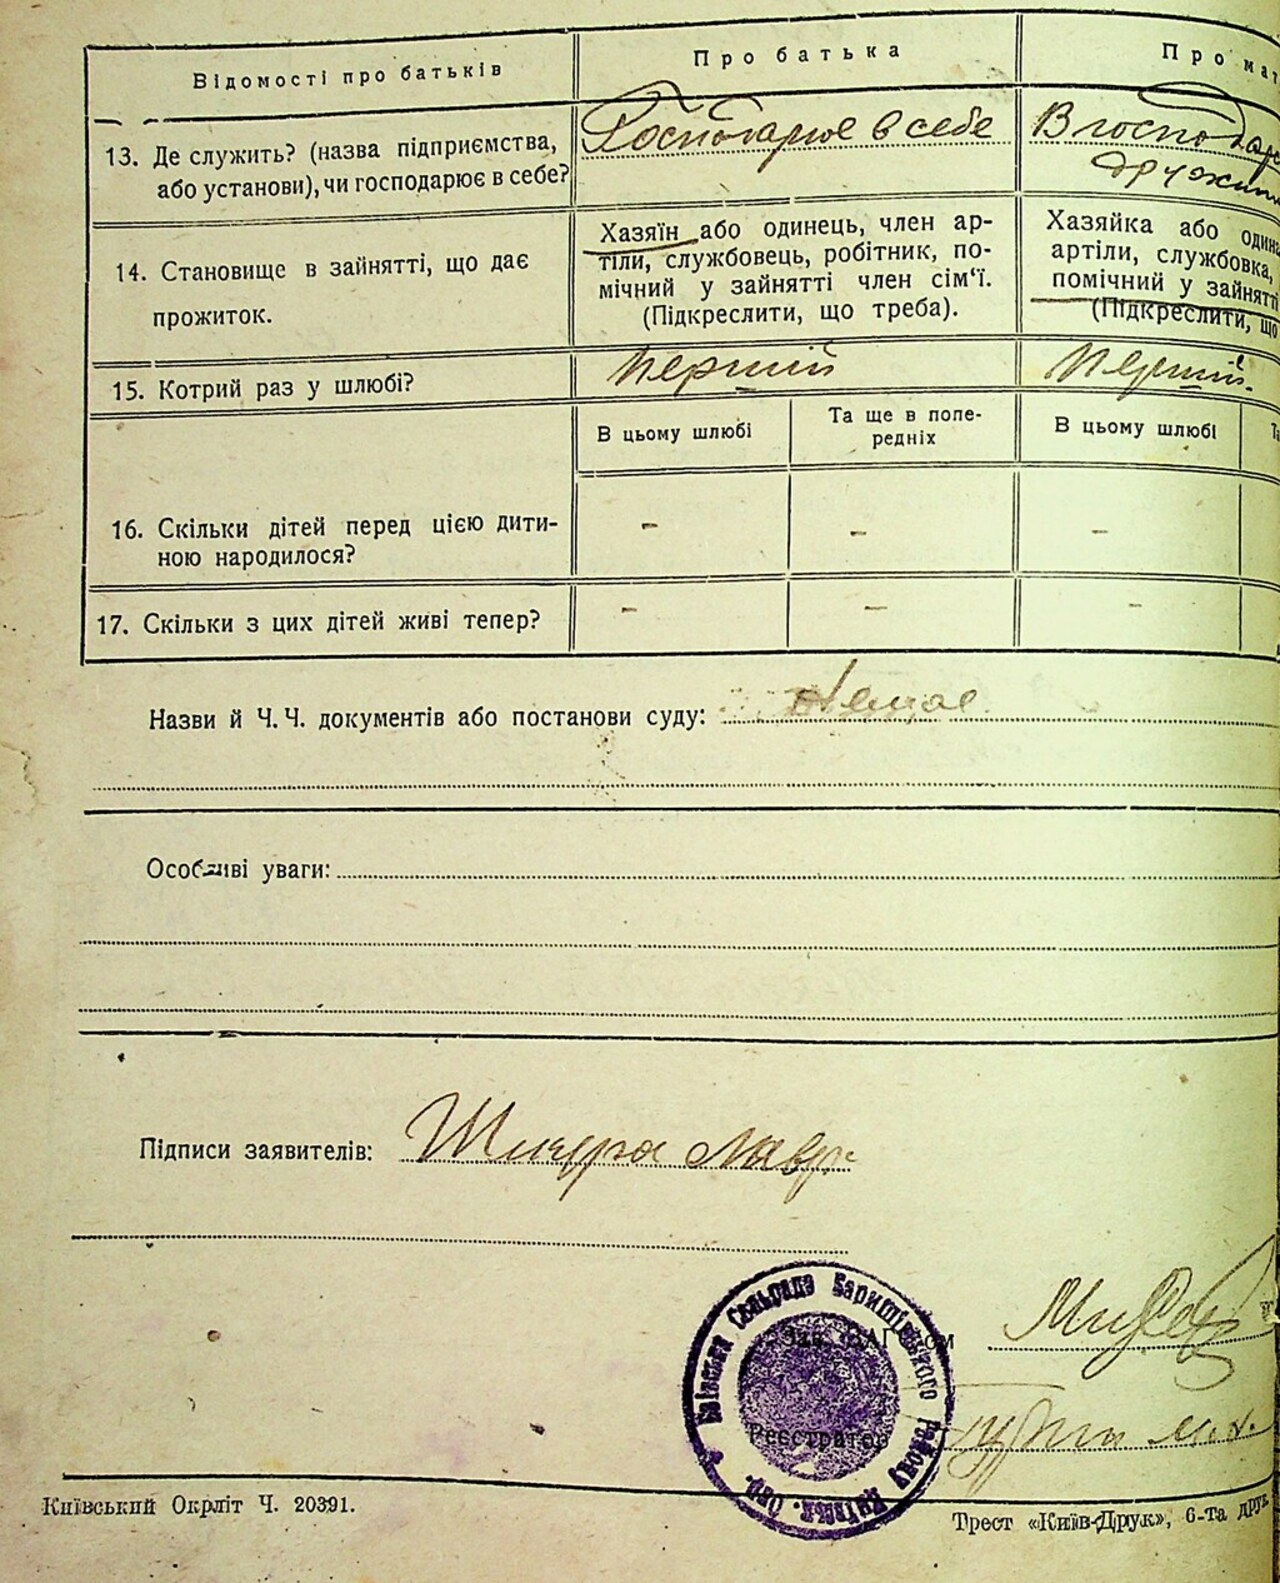 Відомості про батьків
Про батька
Про мат
13. Де служить? (назва підприємства,
або установи), чи господарює в себе?
Господарює в себе
В господар
дружин
14. Становище в зайнятті, що дає
прожиток.
Хазяїн або одинець, член ар-
тіли, службовець, робітник, по-
мічний у зайнятті член сім‘ї.
(Підкреслити, що треба).
Хазяйка або одина
артіли, службовка,
помічний у зайнятті
(Підкреслити, що
15. Котрий раз у шлюбі?
перший
перший
В цьому шлюбі
Та ще в попе-
редніх
В цьому шлюбі
Та
16. Скільки дітей перед цією дити-
ною народилося?
- - -
17. Скільки з цих дітей живі тепер?
- - -
Назви й Ч.Ч. документів або постанови суду: Немає
Особливі уваги:
Підписи заявителів:
Лавр
Сельрада Баришівського району
Зав. ЗАГ'ом
Реєстратор
Київський Окрліт Ч. 20391.
Трест «Київ-Друк», 6-та друк